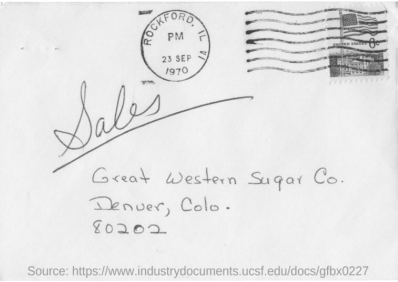 ROCKFORD, IL
PM
23 SEP
1970
UNITED STATES
6c
Sales
Great Western Sugar Co.
Denver, Colo.
80202
Source: https://www.industrydocuments.ucsf.edu/docs/gfbx0227